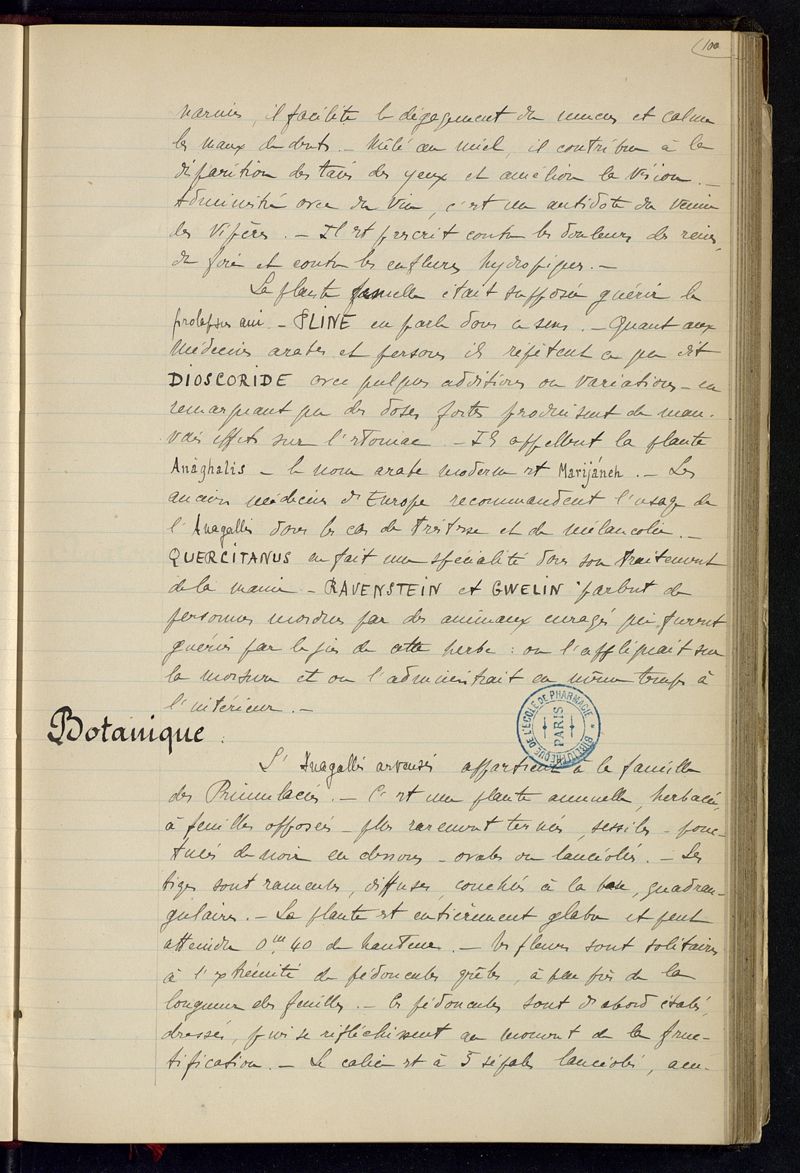 100
narines, il facilite le dégagement du mucus et calme
les maux de dents. – Mêlé au miel, il contribue à la
disparition des taies des yeux et améliore la vision. –
Administré avec du vin, c'est un antidote du venin
des vipères. – Il est prescrit contre les douleurs des reins,
du foie et contre les enflures hydropiques. –
La plante femelle était supposée guérir le
prolapsus ani – PLINE en parle dans ce sens. – Quant aux
médecins arabes et persans ils répètent ce qu'a dit
DIOSCORIDE avec quelques additions ou variations – en
remarquant que des doses fortes produisent de mau-
vais effets sur l'estomac – Ils appellent la plante
Anâghalis – le nom arabe moderne est Marijáneh. – Les
anciens médecins d'Europe recommandent l'usage de
l'Anagallis dans les cas de tristesse et de mélancolie. –
QUERCITANUS en fait une spécialité dans son traitement
de la manie – RAVENSTEIN et GWELIN parlent de
personnes mordues par des animaux enragés qui furent
guéries par le jus de cette herbe : on l'appliquait sur
la morsure et on l'administrait en même temps à
l'intérieur. –
Botanique.
BIBLIOTHÈQUE DE L'ÉCOLE DE PHARMACIE
PARIS
L'Anagallis arvensis appartient à la famille
des Primulacées. – C'est une plante annuelle, herbacée,
à feuilles opposées – plus rarement ternées, sessiles – ponc-
tuées de noir en dessous – ovales ou lancéolées. – Les
tiges sont rameuses, diffuses, couchées à la base, quadran-
gulaires. – La plante est entièrement glabre et peut
atteindre 0m,40 de hauteur. – Les fleurs sont solitaires
à l'extrémité de pédoncules grêles, à peu près de la
longueur des feuilles. – Ces pédoncules sont d'abord étalés,
dressés, puis se réfléchissent au moment de la fruc-
tification. – Le calice est à 5 sépales lancéolés, acu-